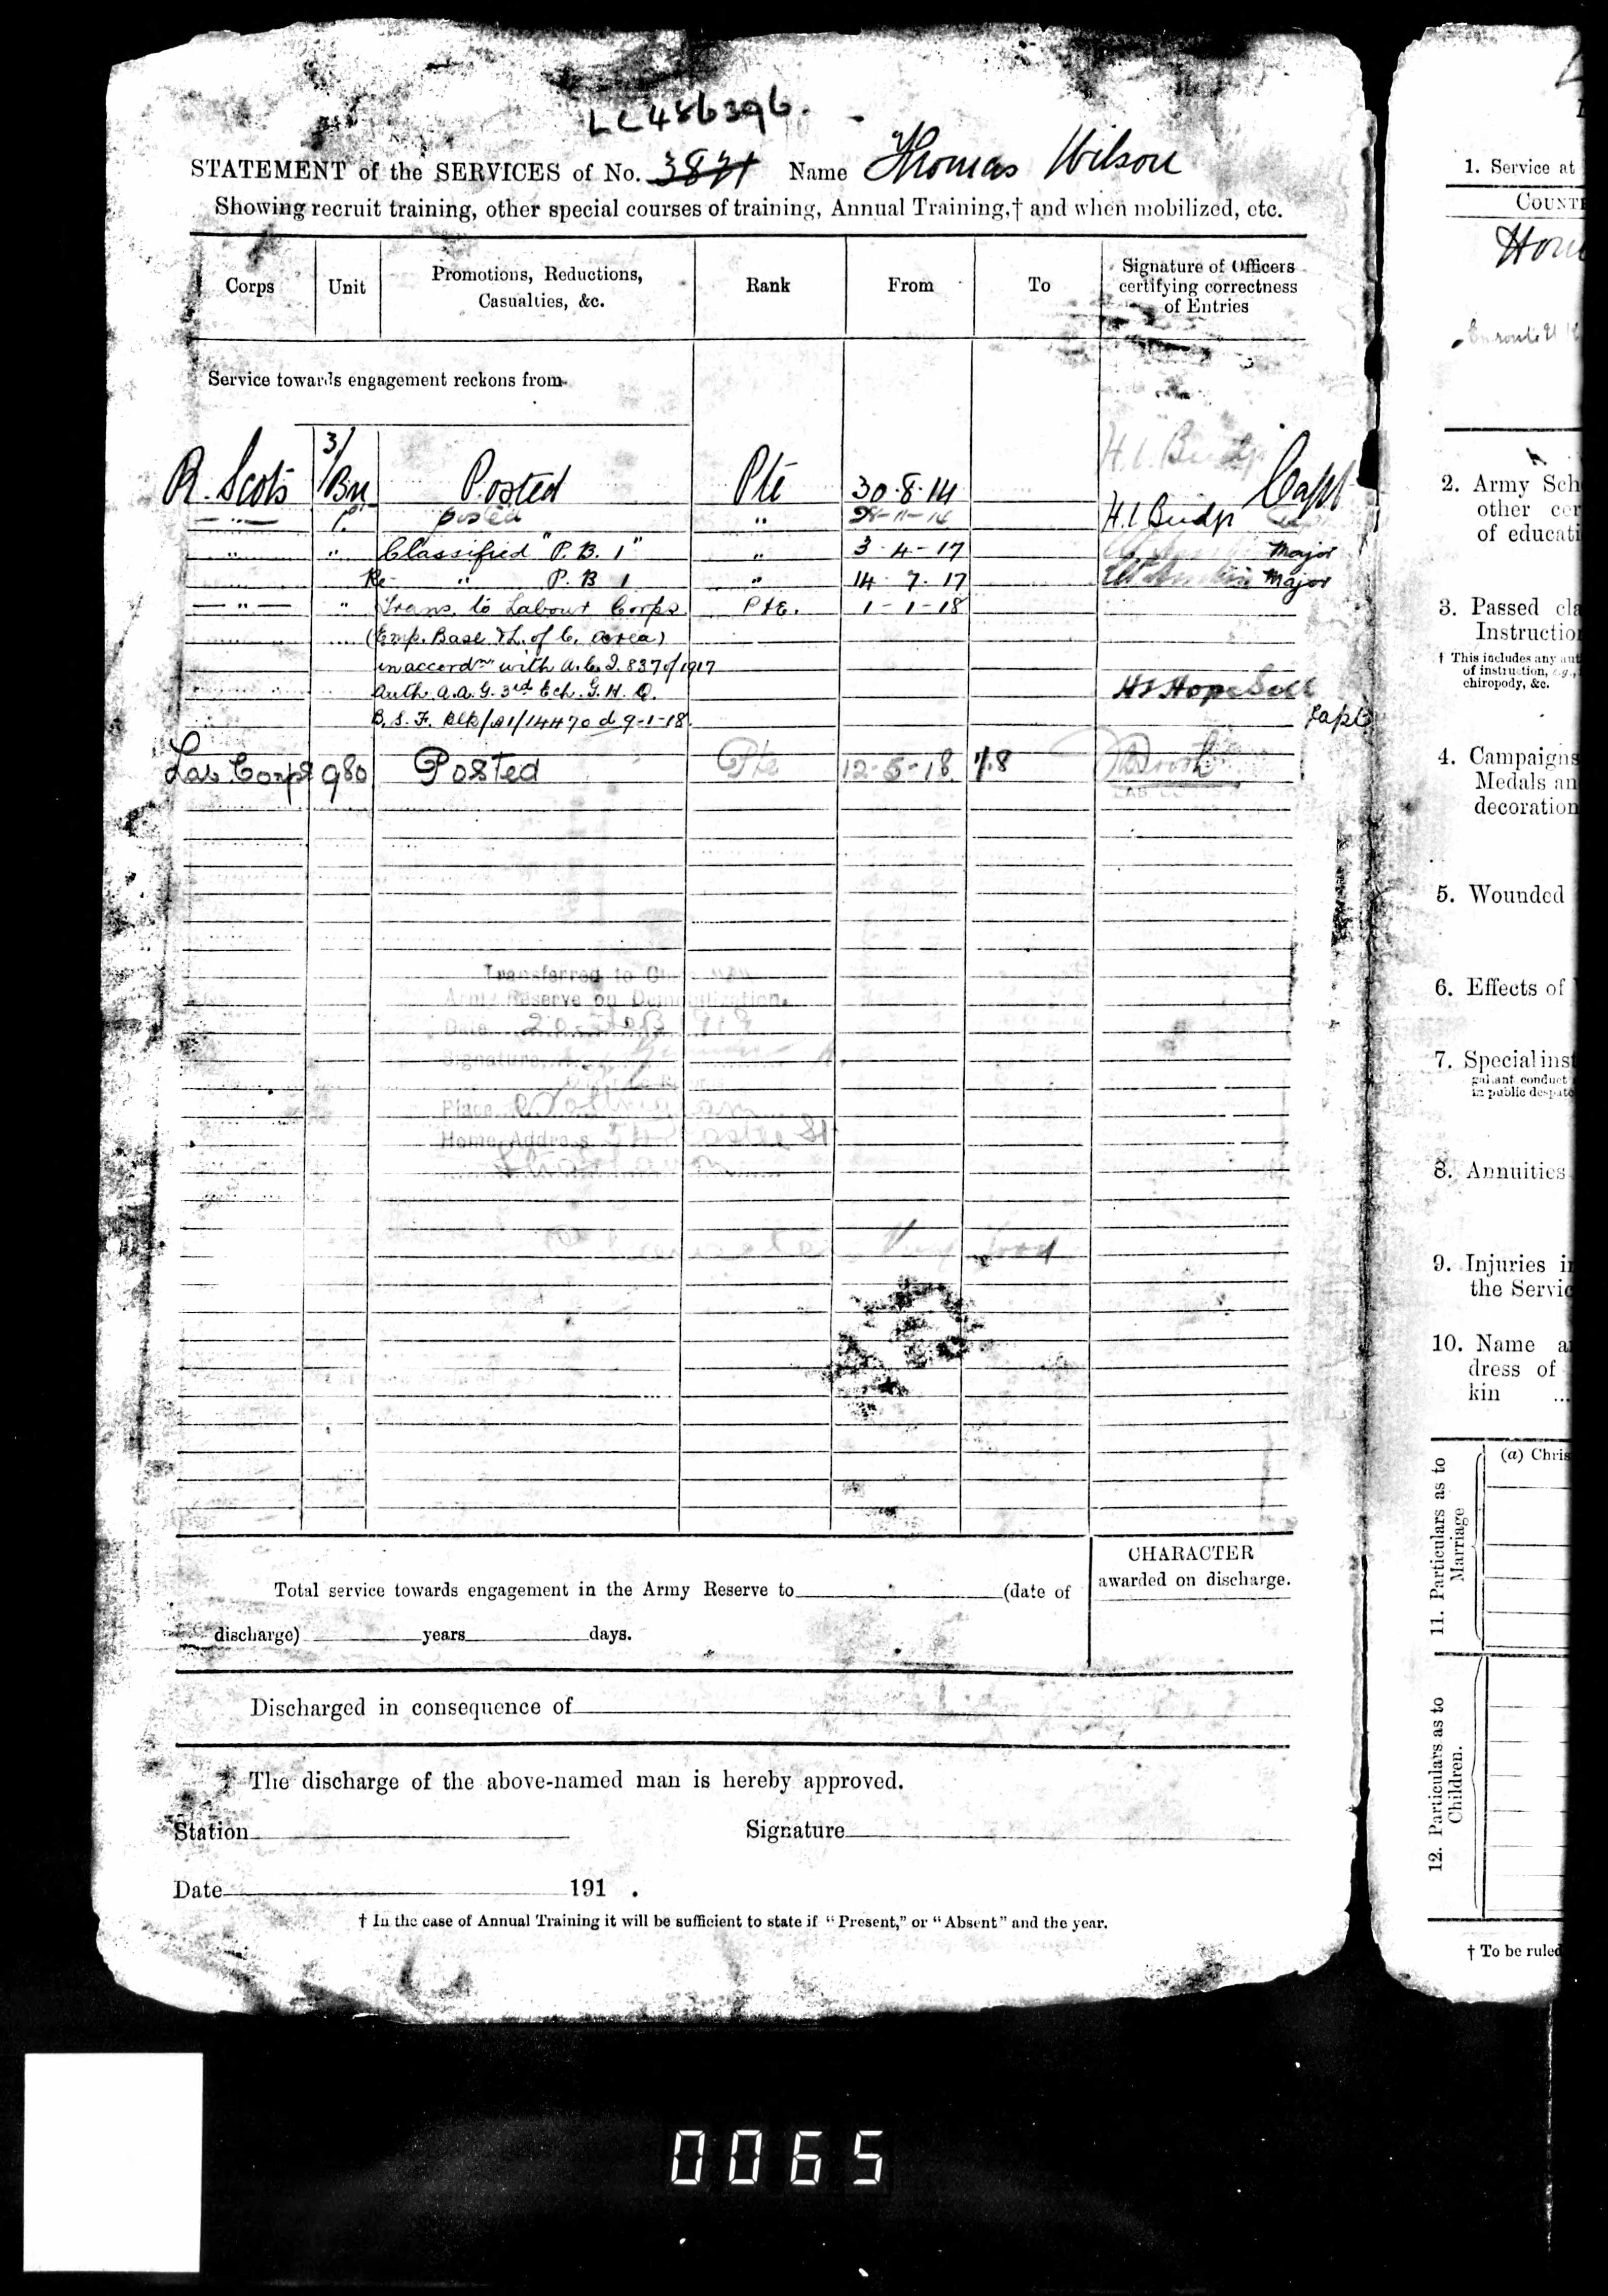 LC486396.
STATEMENT of the SERVICES of No. 3871 Name Thomas Wilson
Showing recruit training, other special courses of training, Annual Training,† and when mobilized, etc.
Corps Unit Promotions, Reductions, Casualties, &c. Rank From To Signature of Officers certifying correctness of Entries
Service towards engagement reckons from
R. Scots 3/Bn Posted Pte 30.8.14 Capt
" posted " H.L. Budge
" " Classified "P.B. 1" " 3-4-17 Major
" Re- " P.B 1 " 14.7.17 Major
" " Trans. to Labour Corps Pte. 1-1-18
(Emp. Base & L. of C. area)
in accordce with A.C.I. 837 of 1917
Auth. A.A.G. 3rd Ech. G.H.Q.
14470 d 9-1-18 Capt
Lab Corps 980 Posted Pte 12-5-18
Transferred to
Army Reserve on Demobilization.
Date
Signature
Place
Home Address St
Very Good
Total service towards engagement in the Army Reserve to (date of
discharge) years days.
CHARACTER
awarded on discharge.
Discharged in consequence of
The discharge of the above-named man is hereby approved.
Station Signature
Date 191 .
† In the case of Annual Training it will be sufficient to state if "Present," or "Absent" and the year.
1. Service at
COUNT
Hom
2. Army Sch
other cer
of educati
3. Passed cla
Instruction
† This includes any
of instruction, e.g.,
chiropody, &c.
4. Campaigns
Medals an
decoration
5. Wounded
6. Effects of
7. Special inst
gallant conduct
in public despatc
8. Annuities
9. Injuries in
the Servic
10. Name a
dress of
kin ...
11. Particulars as to
Marriage
(a) Chris
12. Particulars as to
Children.
† To be ruled
0065